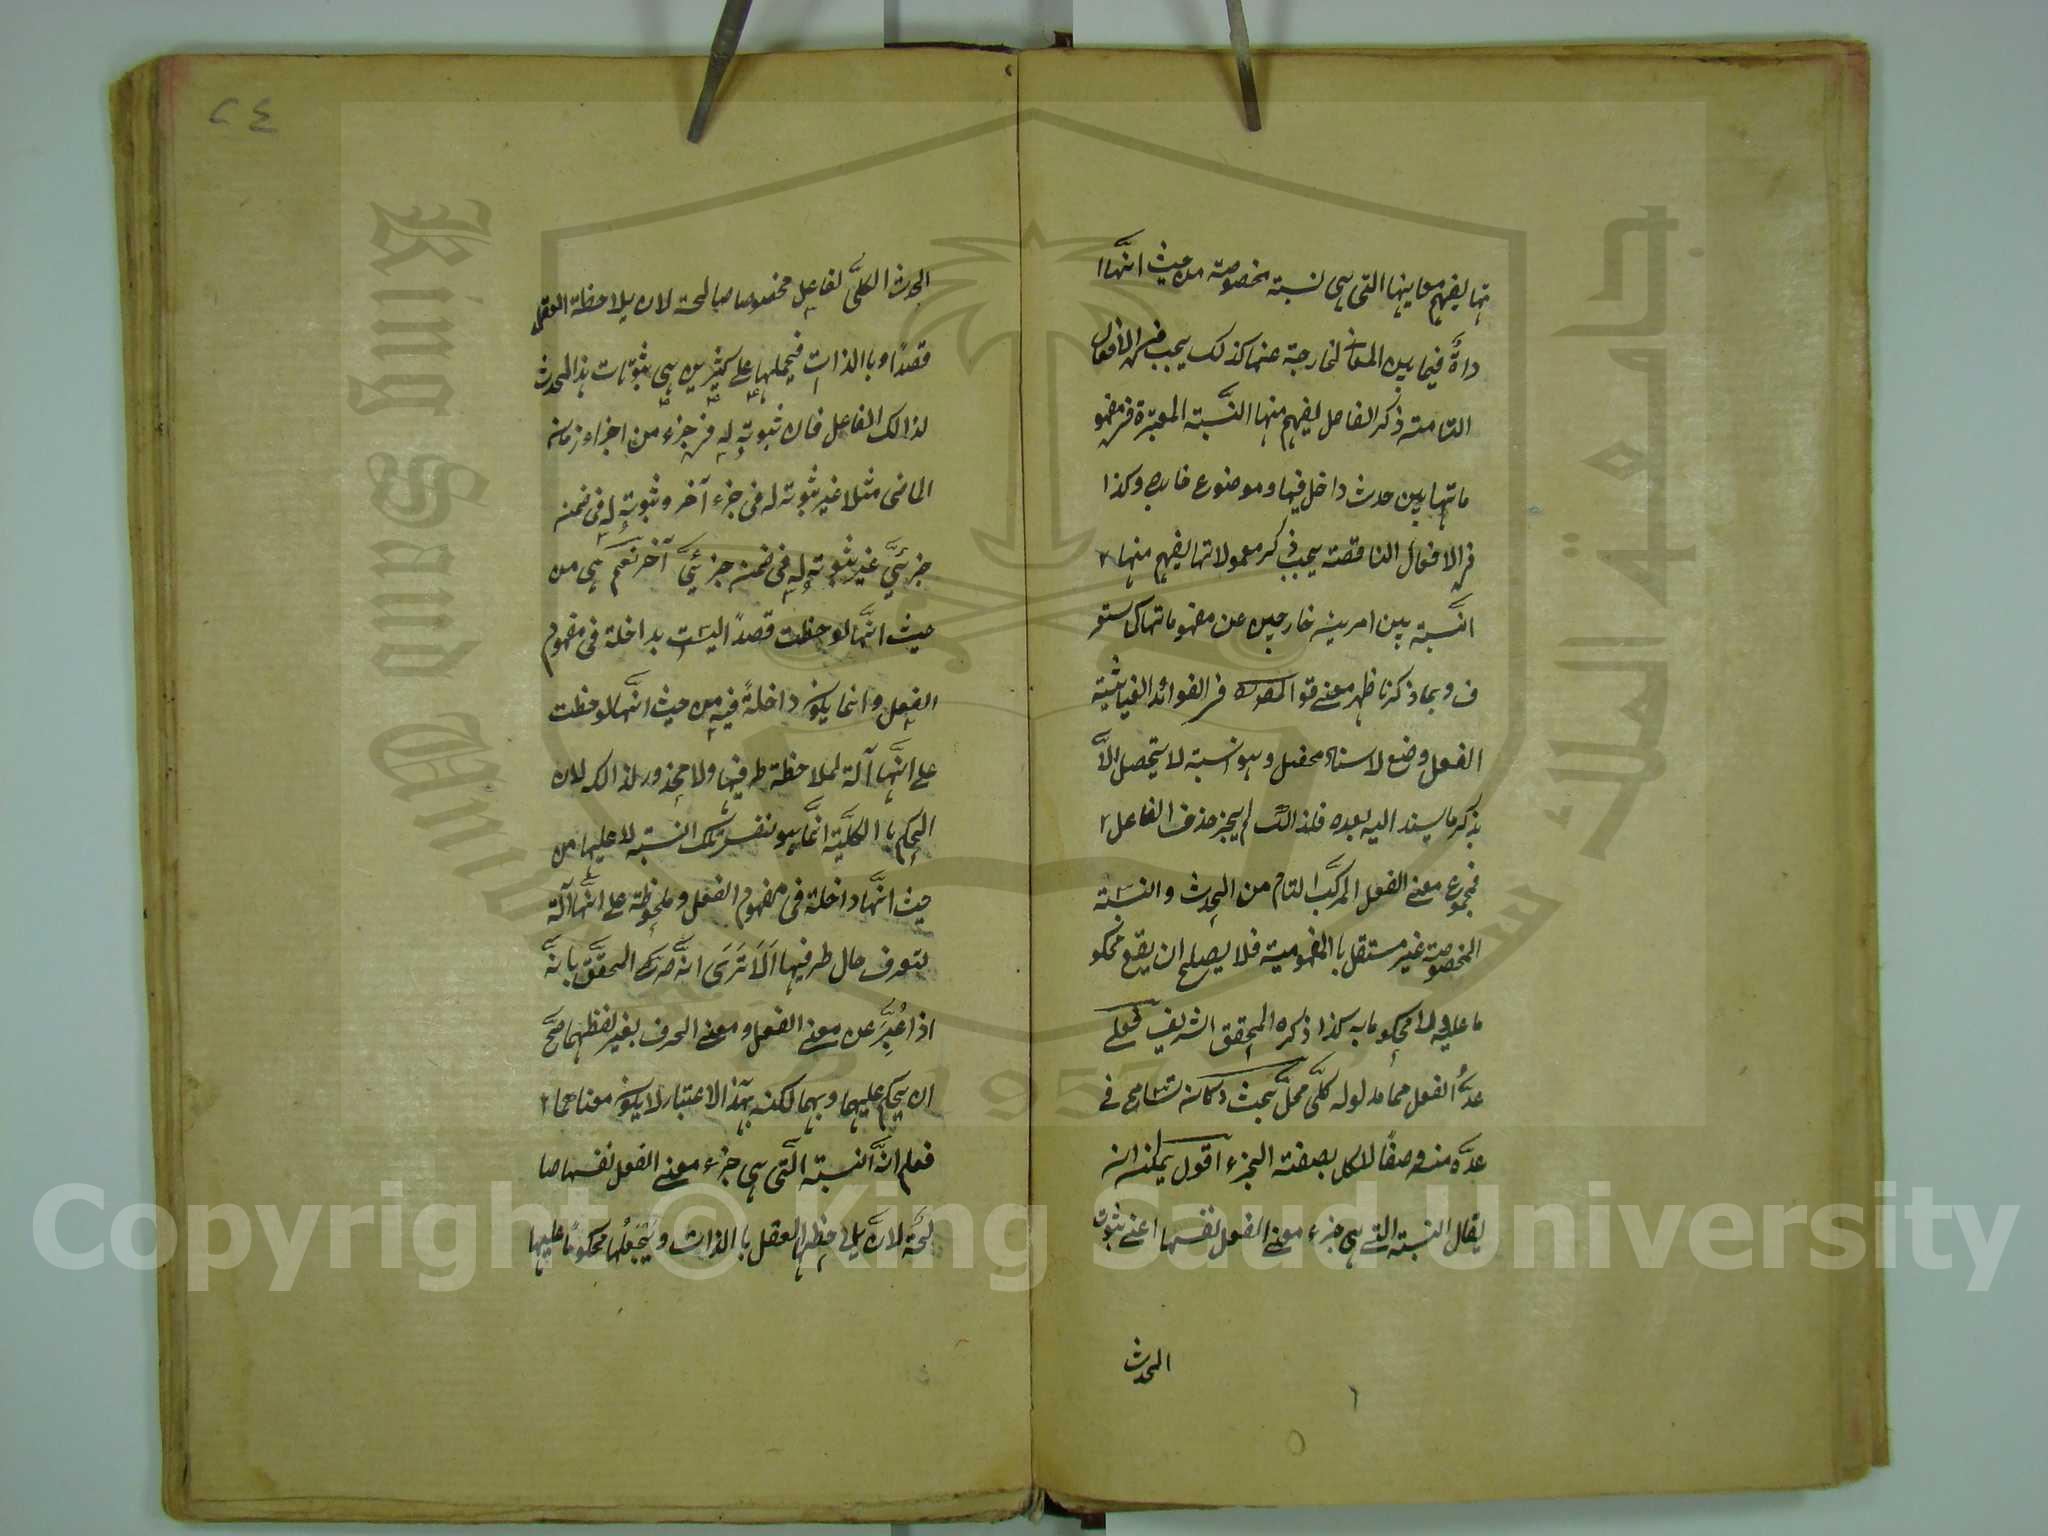 تها ليفهم معاينها التى هى نسبته مخصوصة من حيث انها ا
داة فيما بين المعانى الخارجة عنها كذلك يجب فى الافعال
التامة ذكر الفاعل ليفهم منها النسبته المعتبرة فى مفهو
ماتها بين حدث داخل فيها وموضوع خارج وكذا
فى الافعال الناقصة يجب ذكر معمولاتها ليفهم منها
النسبته بين امرين خارجين عن مفهوماتها كى ستعر
ف وبما ذكرنا ظهر معنى قو المصن فى الفوائد الغياثية
الفعل وضع لاسناد محصل وهو نسبة لا يتحصل الا
بذكر ما يسند اليه بعده فلذالك لم يجز حذف الفاعل
فمجموع معنى الفعل المركب التام من الحدث والنسبته
المخصوصة غير مستقل بالمفهومية فلا يصلح ان يقع محكو
ما عليه لا محكوما به كذا ذكره المحقق الشريف فعلى
عد الفعل مما مدلوله كلى محل بحث وكانه تسامح فى
عده منه وصفا للكل بصفته الجزء اقول يمكن ان
يقال النسبته التى هى جزء معنى الفعل نفسها اعنى ثبوت
الحدث
٢٤
الحدث الكلى لفاعل مخصوصا صالحة لان يلاحظه العقل
قصدا وبالذات فيحملها على كثيرين هى ثبوتات هذا لحدث
لذالك الفاعل فان ثبوته له فى جزء من اجزاء زمانه
الماضى مثلا غير ثبوته له فى جزء آخر وثبوته له فى ضمن
جزئى غير ثبوته له فى ضمن جزئى آخر نعم هى من
حيث انها لوحظت قصدا ليست بداخلة فى مفهوم
الفعل وانما يكون داخلة فيه من حيث انها لوحظت
على انها آلة لملاحظة طرفيها ولا محذور لذالك لان
الحكم با الكلية انما هو لنفس تلك النسبته لا عليها من
حيث انها داخلة فى مفهوم الفعل وملحوظة على انها آلة
لتعرف حال طرفيها الا ترى انه صرح المحقق بانه
اذا عبر عن معنى الفعل ومعنى الحرف بغير لفظهما صح
ان يحكم عليهما وبهما لكنه بهذا الاعتبار لا يكون معناهما
فعلم ان النسبته التى هى جزء معنى الفعل نفسها صا
لحة لان يلاحظها العقل با الذات ويجعلها محكوما عليها
Copyright © King Saud University
King Saud University
جامعة الملك سعود
1957